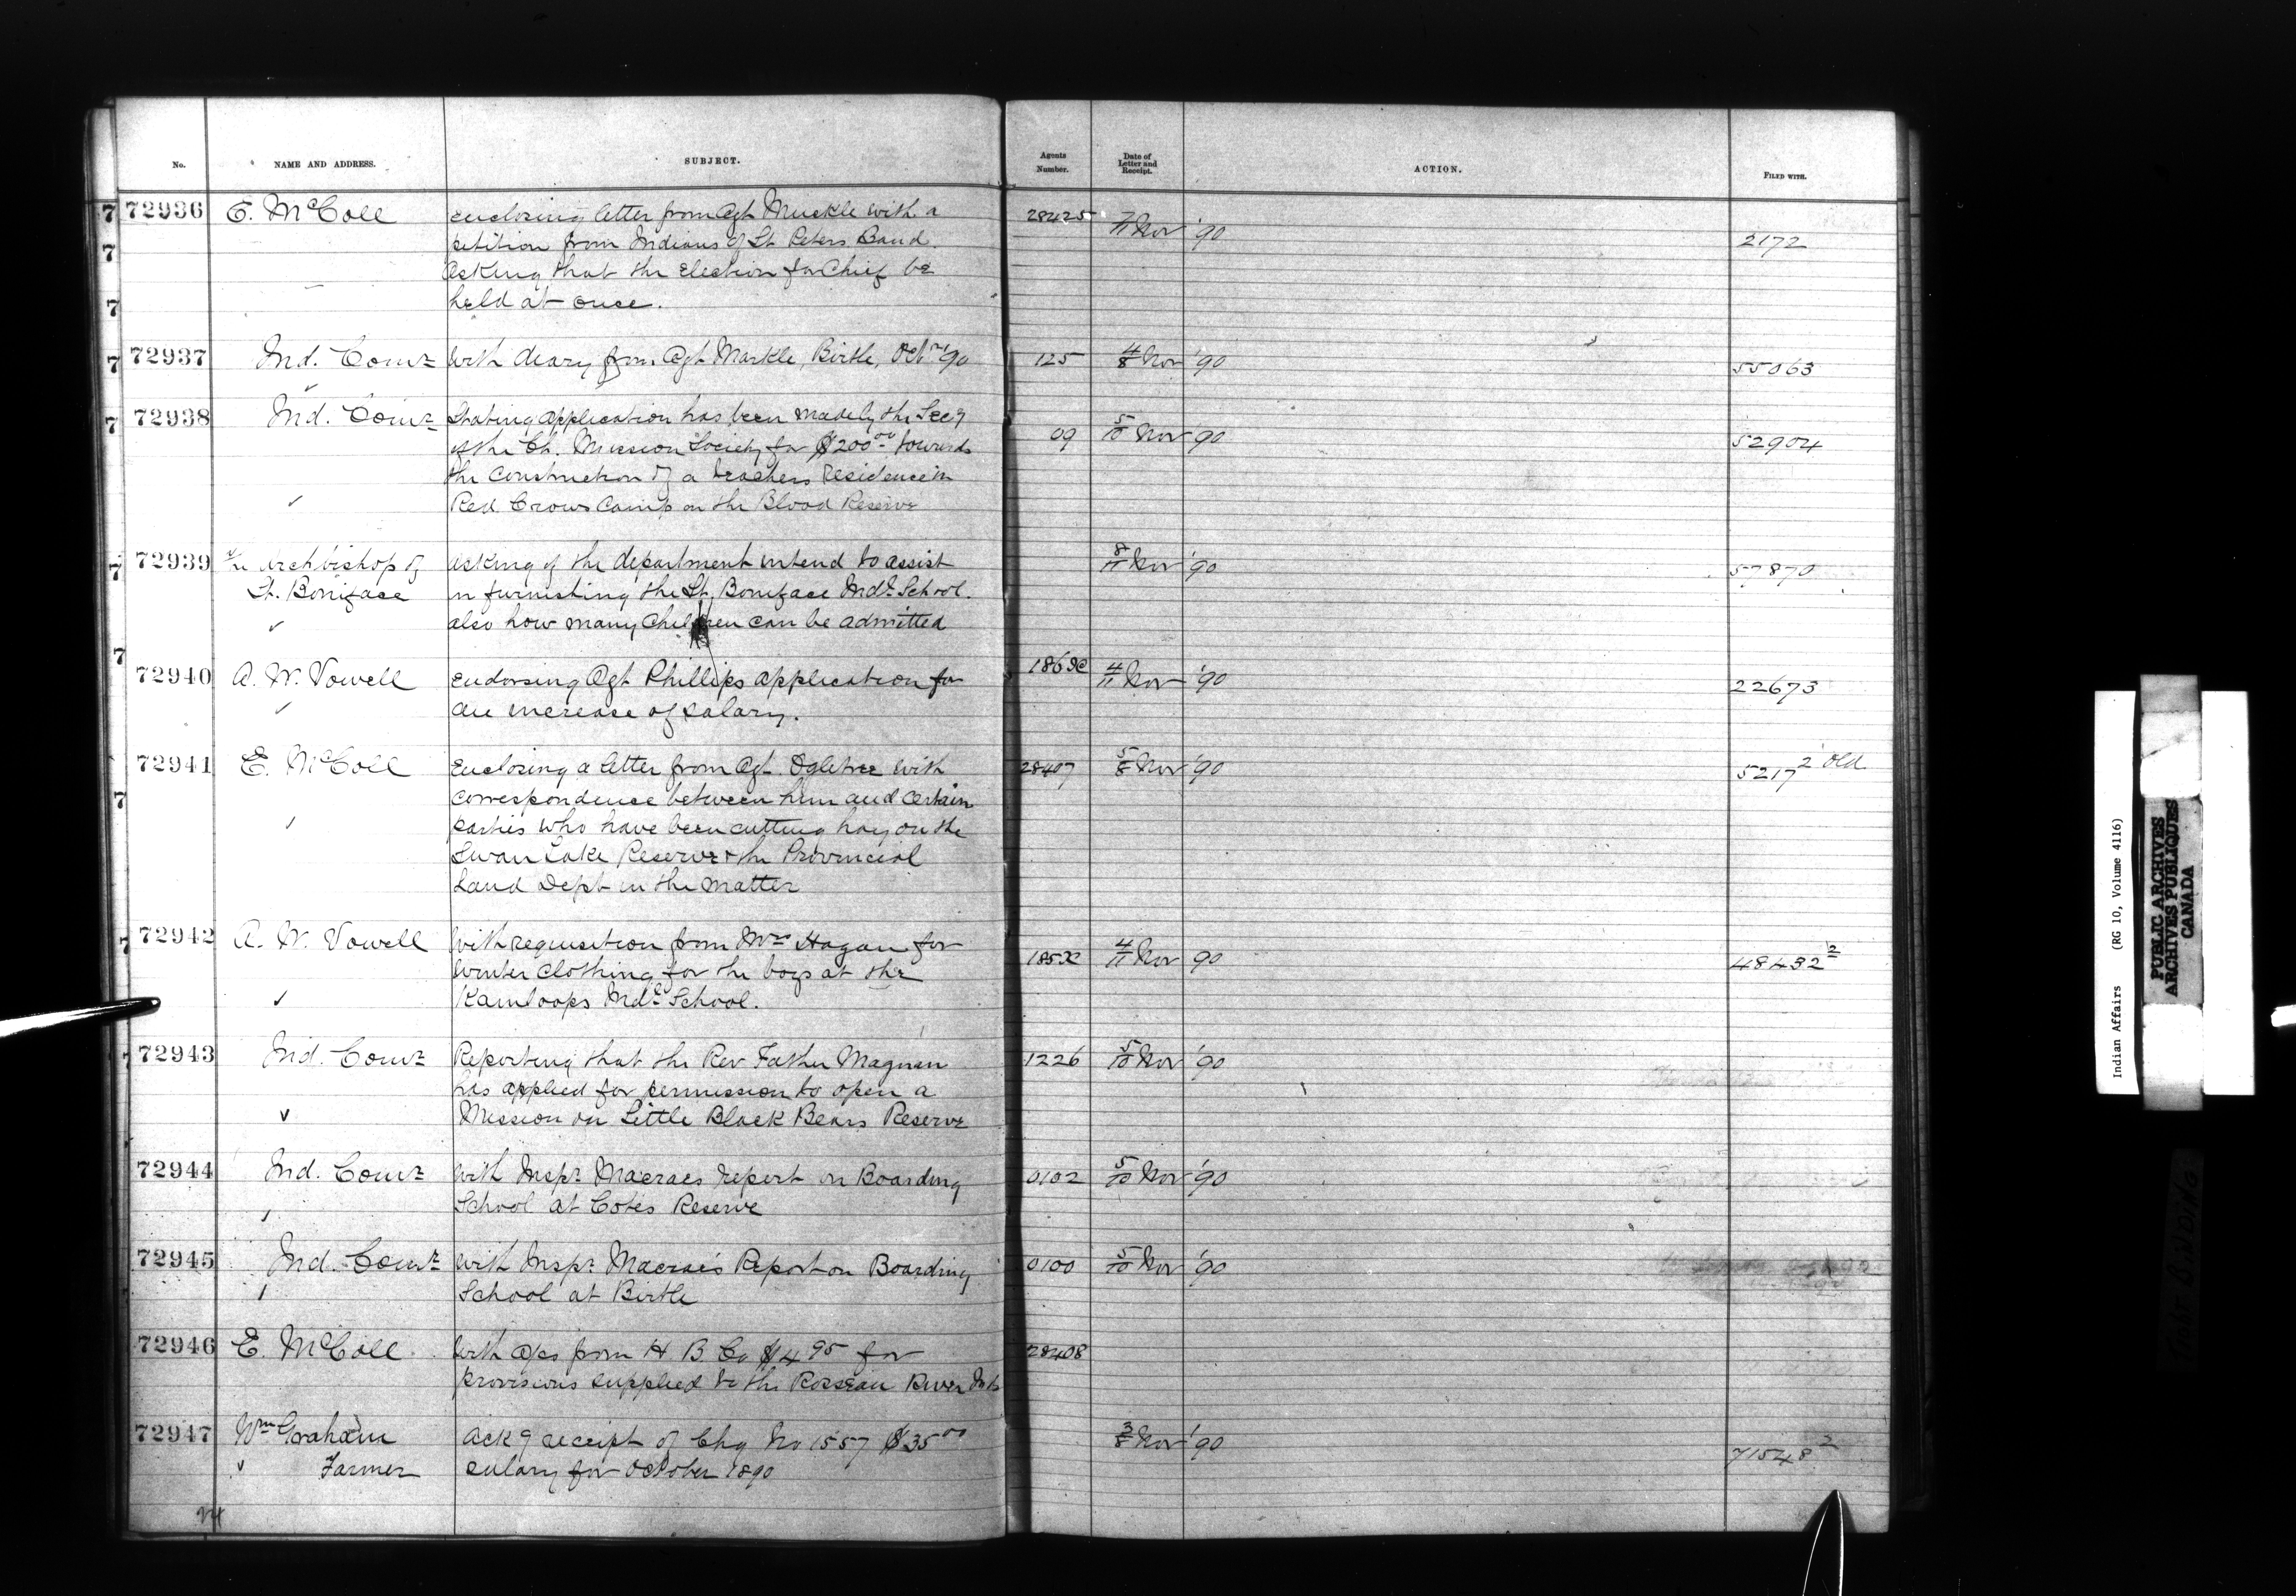 No. NAME AND ADDRESS. SUBJECT. Agents Number. Date of Letter and Receipt. ACTION. FILED WITH.
72936 E. McColl enclosing letter from Agt Muckle with a 28425 7/11 Nov '90 2172
petition from Indians of St Peters Band
asking that the Election for Chief be
held at once.
72937 Ind. Comr With diary from Agt Markle, Birtle, Octr '90 125 4/8 Nov '90 55063
72938 Ind. Comr Stating application has been made by the Secy 09 5/10 Nov 90 52904
of the Ch. Mission Society for $200 00 towards
the construction of a teachers residence in
Red Crows Camp on the Blood Reserve
72939 Archbishop of asking if the department intend to assist 8/11 Nov '90 57870
St. Boniface in furnishing the St. Boniface Indl School.
also how many Children can be admitted
72940 A. W. Vowell endorsing Agt Phillips application for 4/11 Nov '90 22673
an increase of salary.
72941 E. McColl Enclosing a letter from Agt. Ogletree with 28407 5/8 Nov '90 5217 2 Old
correspondence between him and certain
parties who have been cutting hay on the
Swan Lake Reserve & the Provincial
Land Dept in the matter
72942 A. W. Vowell With requisition from Mrs Hagan for 4/11 Nov 90 48432 2
Winter Clothing for the boys at the
Kamloops Indl School.
72943 Ind. Comr Reporting that the Rev Father Magnan 1226 5/10 Nov '90
has applied for permission to open a
Mission on Little Black Bears Reserve
72944 Ind. Comr With Inspr Macraes report on Boarding 0102 5/10 Nov '90
School at Cotes Reserve
72945 Ind. Comr With Inspr Macrae's Report on Boarding 0100 5/10 Nov '90
School at Birtle
72946 E. McColl With a/cs from H B Co $4 95 for 28408
provisions supplied to the Rosseau River Inds
72947 Wm Graham Ackg receipt of Chq No 1557 $35 00 3/8 Nov '90 71548 2
Farmer salary for October 1890
Indian Affairs (RG 10, Volume 4116)
PUBLIC ARCHIVES
ARCHIVES PUBLIQUES
CANADA